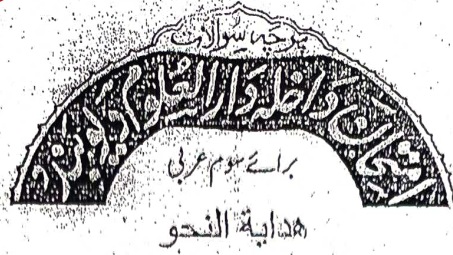 پرچہ سوالات
امتحان داخلہ دارالعلوم دیوبند
برائے سوم عربی
هداية النحو